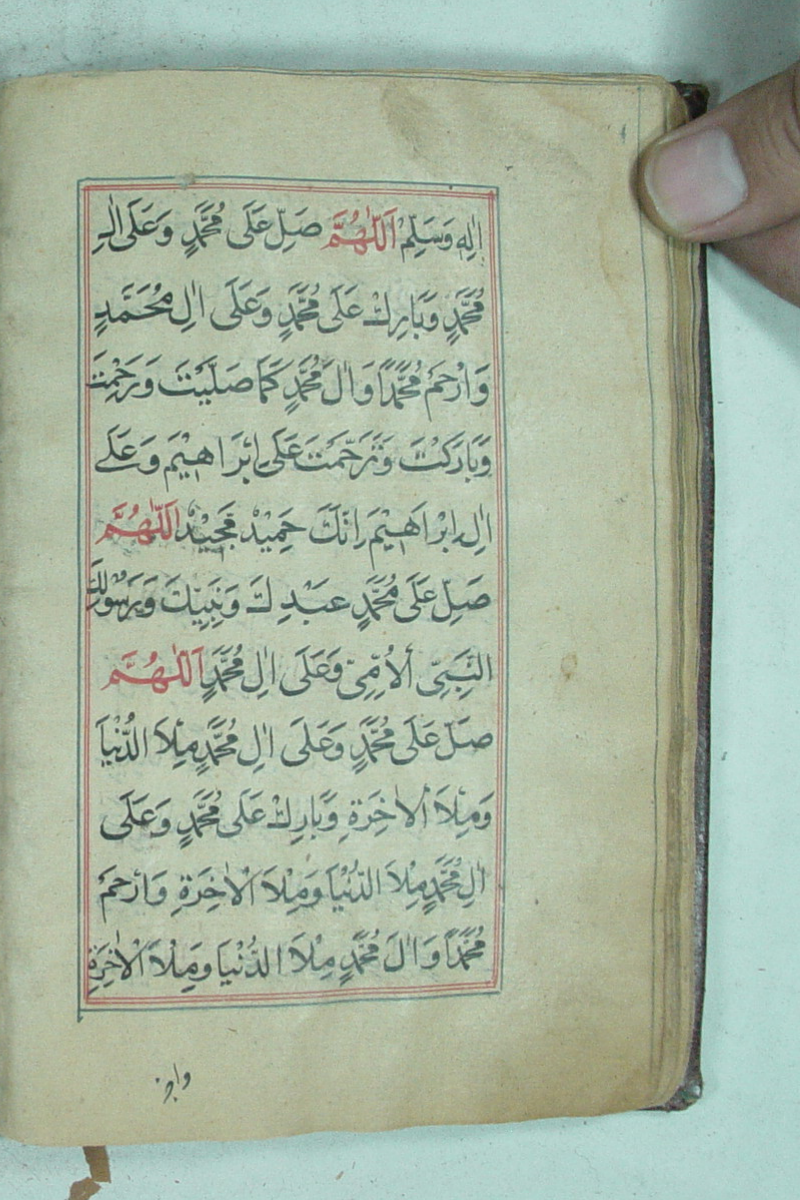 اٰلِهٖ وَسَلِّمْ اَللّٰهُمَّ صَلِّ عَلَى مُحَمَّدٍ وَعَلَى اٰلِ
مُحَمَّدٍ وَبَارِكْ عَلَى مُحَمَّدٍ وَعَلَى اٰلِ مُحَمَّدٍ
وَارْحَمْ مُحَمَّدًا وَاٰلَ مُحَمَّدٍ كَمَا صَلَّيْتَ وَرَحِمْتَ
وَبَارَكْتَ وَتَرَحَّمْتَ عَلَى اِبْرَاهِيْمَ وَعَلَى
اٰلِ اِبْرَاهِيْمَ اِنَّكَ حَمِيْدٌ مَّجِيْدٌ اَللّٰهُمَّ
صَلِّ عَلَى مُحَمَّدٍ عَبْدِكَ وَنَبِيِّكَ وَرَسُوْلِكَ
النَّبِيِّ الْاُمِّيِّ وَعَلَى اٰلِ مُحَمَّدٍ اَللّٰهُمَّ
صَلِّ عَلَى مُحَمَّدٍ وَعَلَى اٰلِ مُحَمَّدٍ مِلْاَ الدُّنْيَا
وَمِلْاَ الْاٰخِرَةِ وَبَارِكْ عَلَى مُحَمَّدٍ وَعَلَى
اٰلِ مُحَمَّدٍ مِلْاَ الدُّنْيَا وَمِلْاَ الْاٰخِرَةِ وَارْحَمْ
مُحَمَّدًا وَاٰلَ مُحَمَّدٍ مِلْاَ الدُّنْيَا وَمِلْاَ الْاٰخِرَةِ
واجز